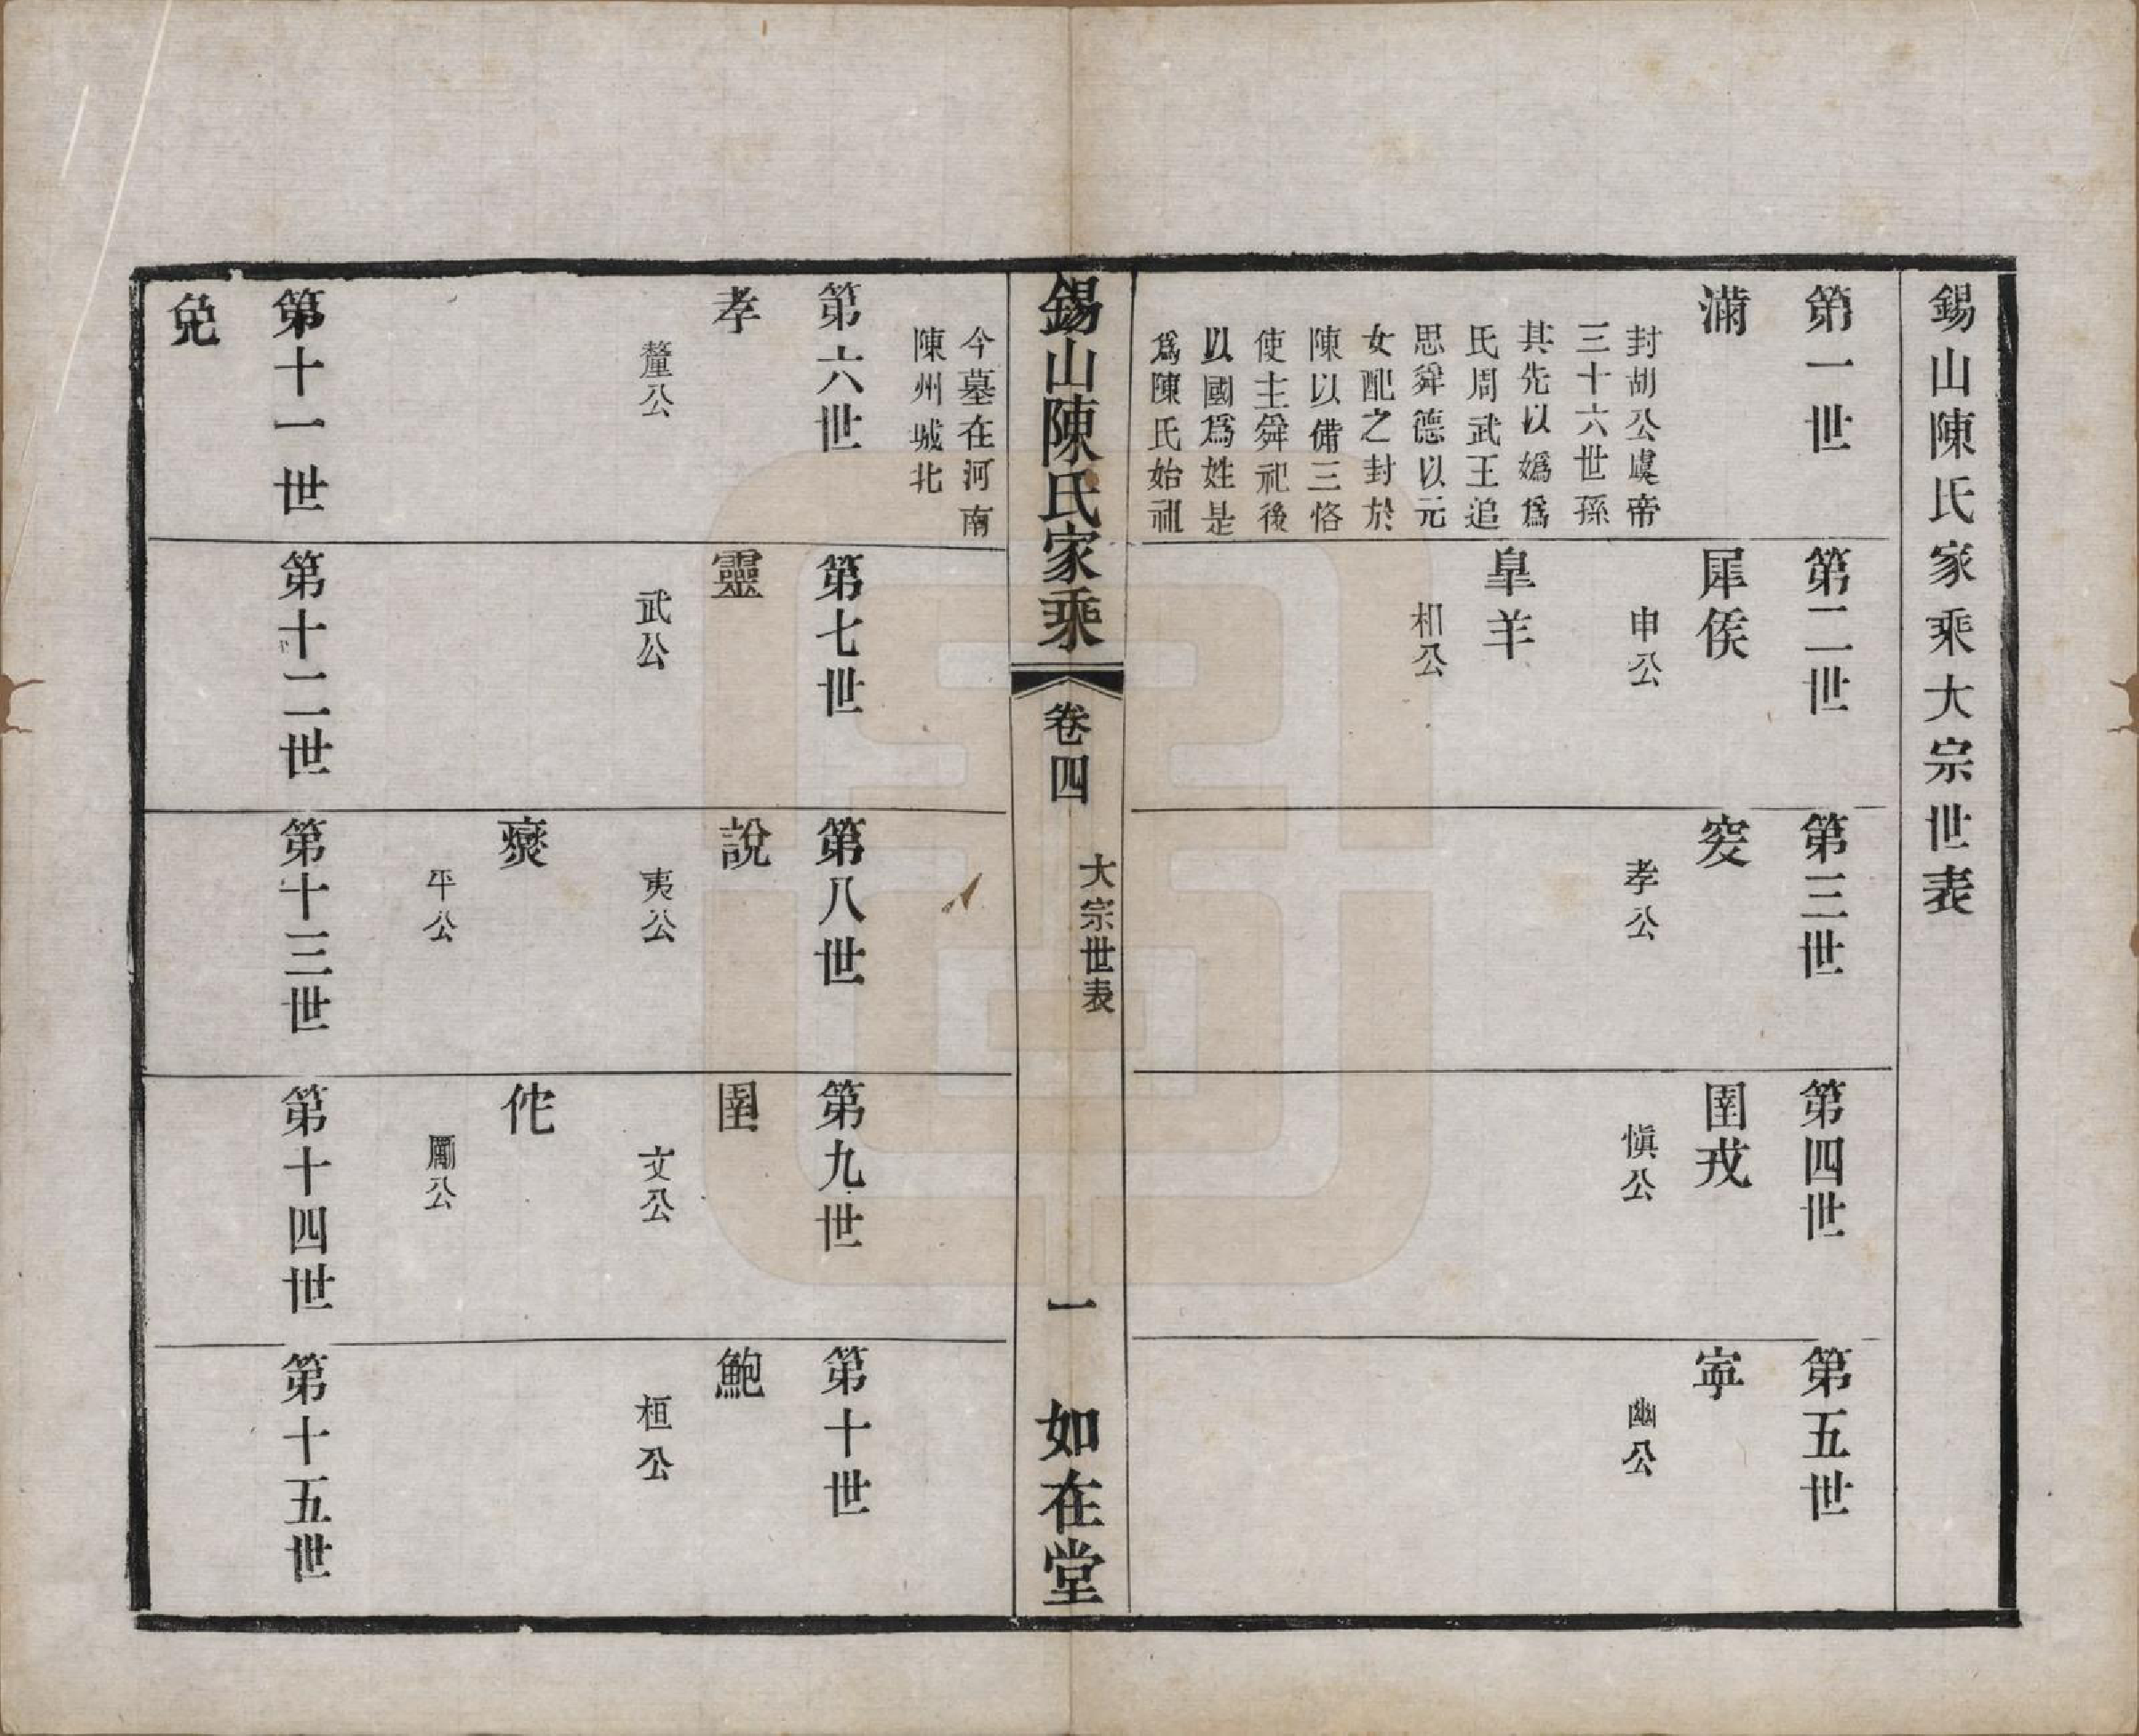 錫山陳氏家乘大宗世表
第一世
滿
封胡公虞帝
三十六世孫
其先以嬀爲
氏周武王追
思舜德以元
女配之封於
陳以備三恪
使主舜祀後
以國爲姓是
爲陳氏始祖
第二世
犀侯
申公
皐羊
相公
第三世
突
孝公
第四世
圉戎
愼公
第五世
寧
幽公
錫山陳氏家乘
卷四
大宗世表
一
如在堂
今墓在河南
陳州城北
第六世
孝
釐公
第七世
靈
武公
第八世
說
夷公
燮
平公
第九世
圉
文公
佗
厲公
第十世
鮑
桓公
第十一世
免
第十二世
第十三世
第十四世
第十五世